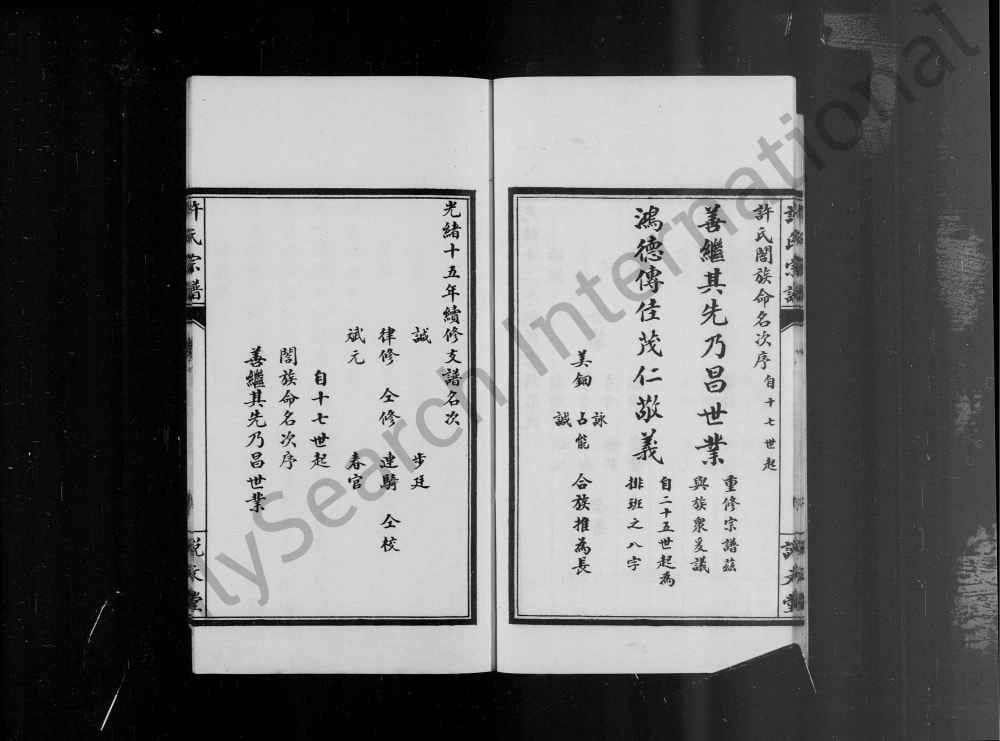 許氏宗譜
說文堂
許氏閤族命名次序 自十七世起
善繼其先乃昌世業
重修宗譜茲
與族衆妥議
鴻德傳佳茂仁敬義
自二十五世起為
排班之八字
美鈿
詠
占能
誠
合族推為長
光緒十五年續修支譜名次
誠 步廷
律修 仝修 連騎 仝校
斌元 春官
自十七世起
閤族命名次序
善繼其先乃昌世業
許氏宗譜
說文堂
lySearch International